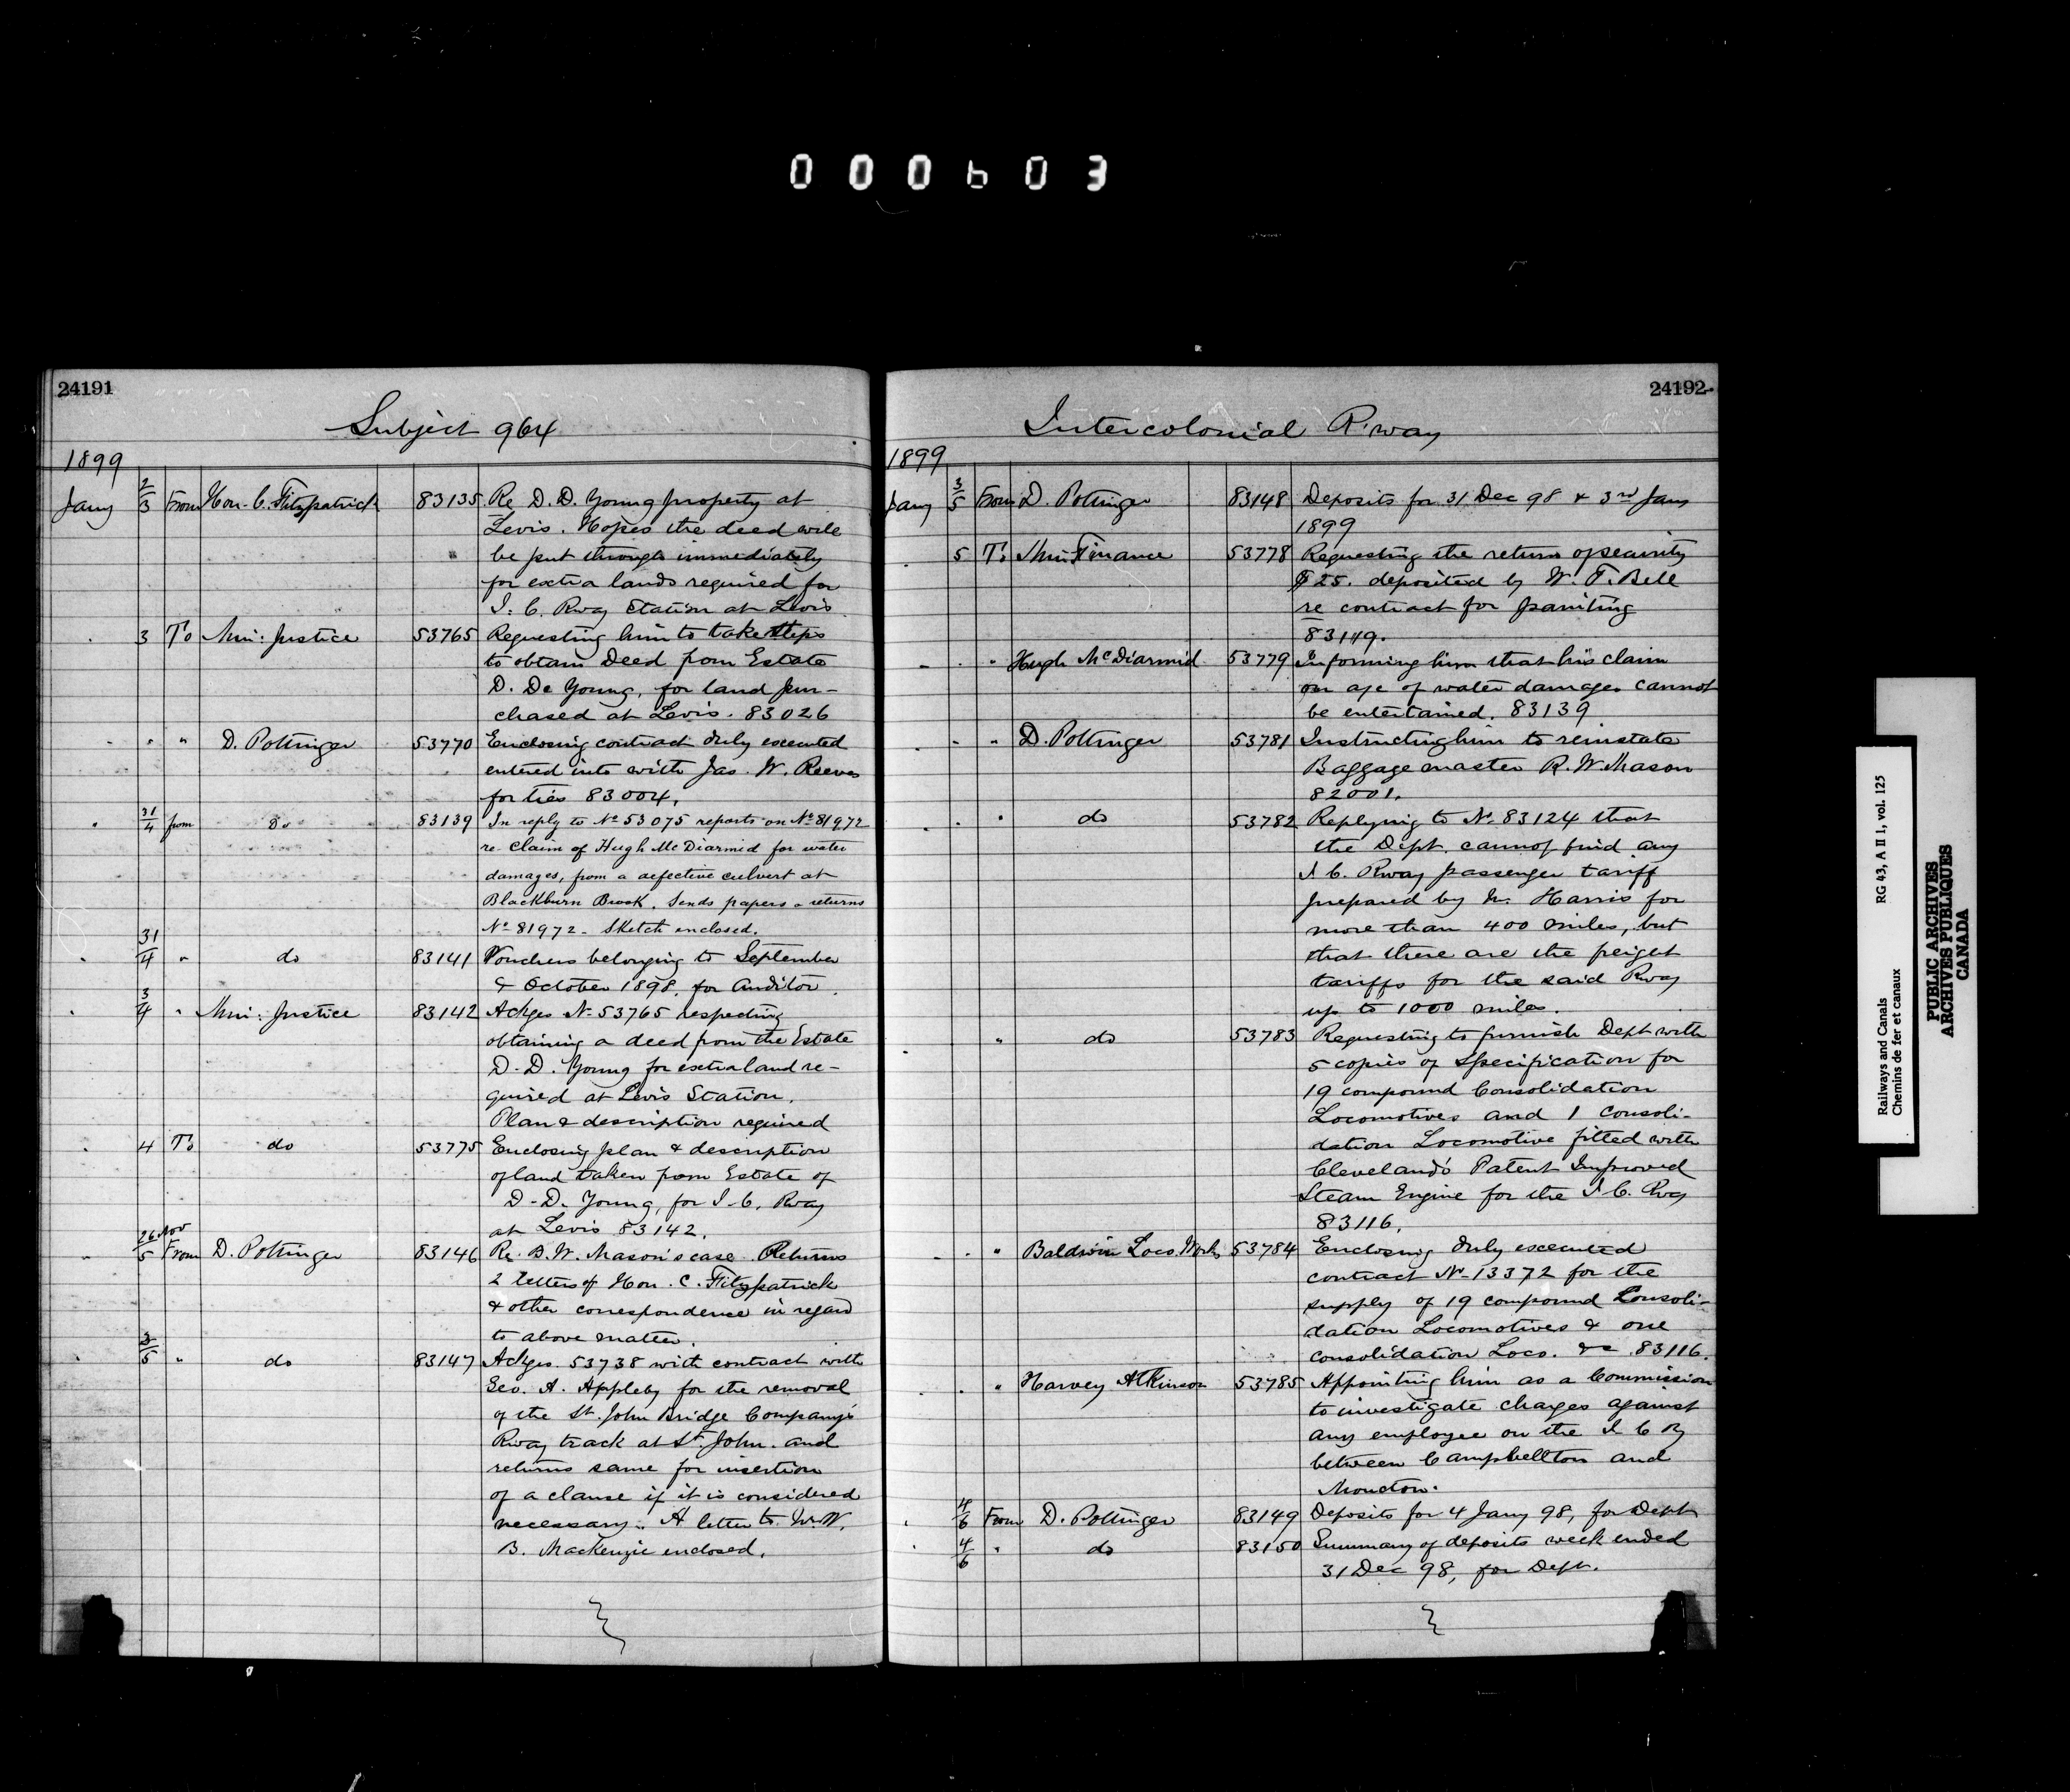 000603
24191
Subject 964
1899
Jany 2/3 From Hon. C. Fitzpatrick 83135 Re D. D. Young property at
Levis. Hopes the deed will
be put through immediately
for extra lands required for
I. C. Rway Station at Levis
" 3 To Min: Justice 53765 Requesting him to take steps
to obtain Deed from Estate
D. De Young, for land pur-
chased at Levis. 83026
" " " D. Pottinger 53770 Enclosing contract duly executed
entered into with Jas. W. Reeves
for ties 83004.
" 31/4 from Do 83139 In reply to No 53075 reports on No 81972
re claim of Hugh McDiarmid for water
damages, from a defective culvert at
Blackburn Brook. Sends papers & returns
No 81972 - Sketch enclosed.
" 31/4 " do 83141 Vouchers belonging to September
& October 1898, for Auditor.
" 3/4 " Min: Justice 83142 Ackges No 53765 respecting
obtaining a deed from the Estate
D. D. Young for extra land re-
quired at Levis Station.
Plan & description required
" 4 To do 53775 Enclosing plan & description
of land taken from Estate of
D. D. Young, for I. C. Rway
at Levis 83142.
" 26 Nov/5 From D. Pottinger 83146 Re. B. W. Mason's case. Returns
2 letters of Hon. C. Fitzpatrick
& other correspondence in regard
to above matter.
" 3/5 " do 83147 Ackges. 53738 with contract with
Geo. A. Appleby for the removal
of the St. John Bridge Company's
Rway track at St John. and
returns same for insertion
of a clause if it is considered
necessary. A letter to W. W.
B. MacKenzie enclosed.
24192
Intercolonial R'way
1899
Jany 3/5 From D. Pottinger 83148 Deposits for 31 Dec 98 & 3rd Jany
1899
" 5 To Min Finance 53778 Requesting the return of security
$25. deposited by W. T. Bell
re contract for painting
83119.
" " " Hugh McDiarmid 53779 Informing him that his claim
on a/c of water damages cannot
be entertained. 83139
" " " D. Pottinger 53781 Instructing him to reinstate
Baggage master R. W. Mason
82001.
" " " do 53782 Replying to No 83124 that
the Dept. cannot find any
I C. Rway passenger tariff
prepared by Mr. Harris for
more than 400 miles, but
that there are the freight
tariffs for the said Rway
up to 1000 miles.
" " do 53783 Requesting to furnish Dept with
5 copies of Specification for
19 compound Consolidation
Locomotives and 1 Consoli-
dation Locomotive fitted with
Cleveland's Patent Improved
Steam Engine for the I C. Rway
83116.
" " " Baldwin Loco. Works 53784 Enclosing duly executed
contract No 13372 for the
supply of 19 compound Consoli-
dation Locomotives & one
consolidation Loco. &c. 83116.
" " " Harvey Atkinson 53785 Appointing him as a Commission
to investigate charges against
any employee on the I C Ry
between Campbellton and
Moncton.
" 4/6 From D. Pottinger 83149 Deposits for 4 Jany 98, for Dept
" 4/6 " do 83150 Summary of deposits week ended
31 Dec 98, for Dept.
Railways and Canals RG 43, A II 1, vol. 125
Chemins de fer et canaux
PUBLIC ARCHIVES
ARCHIVES PUBLIQUES
CANADA